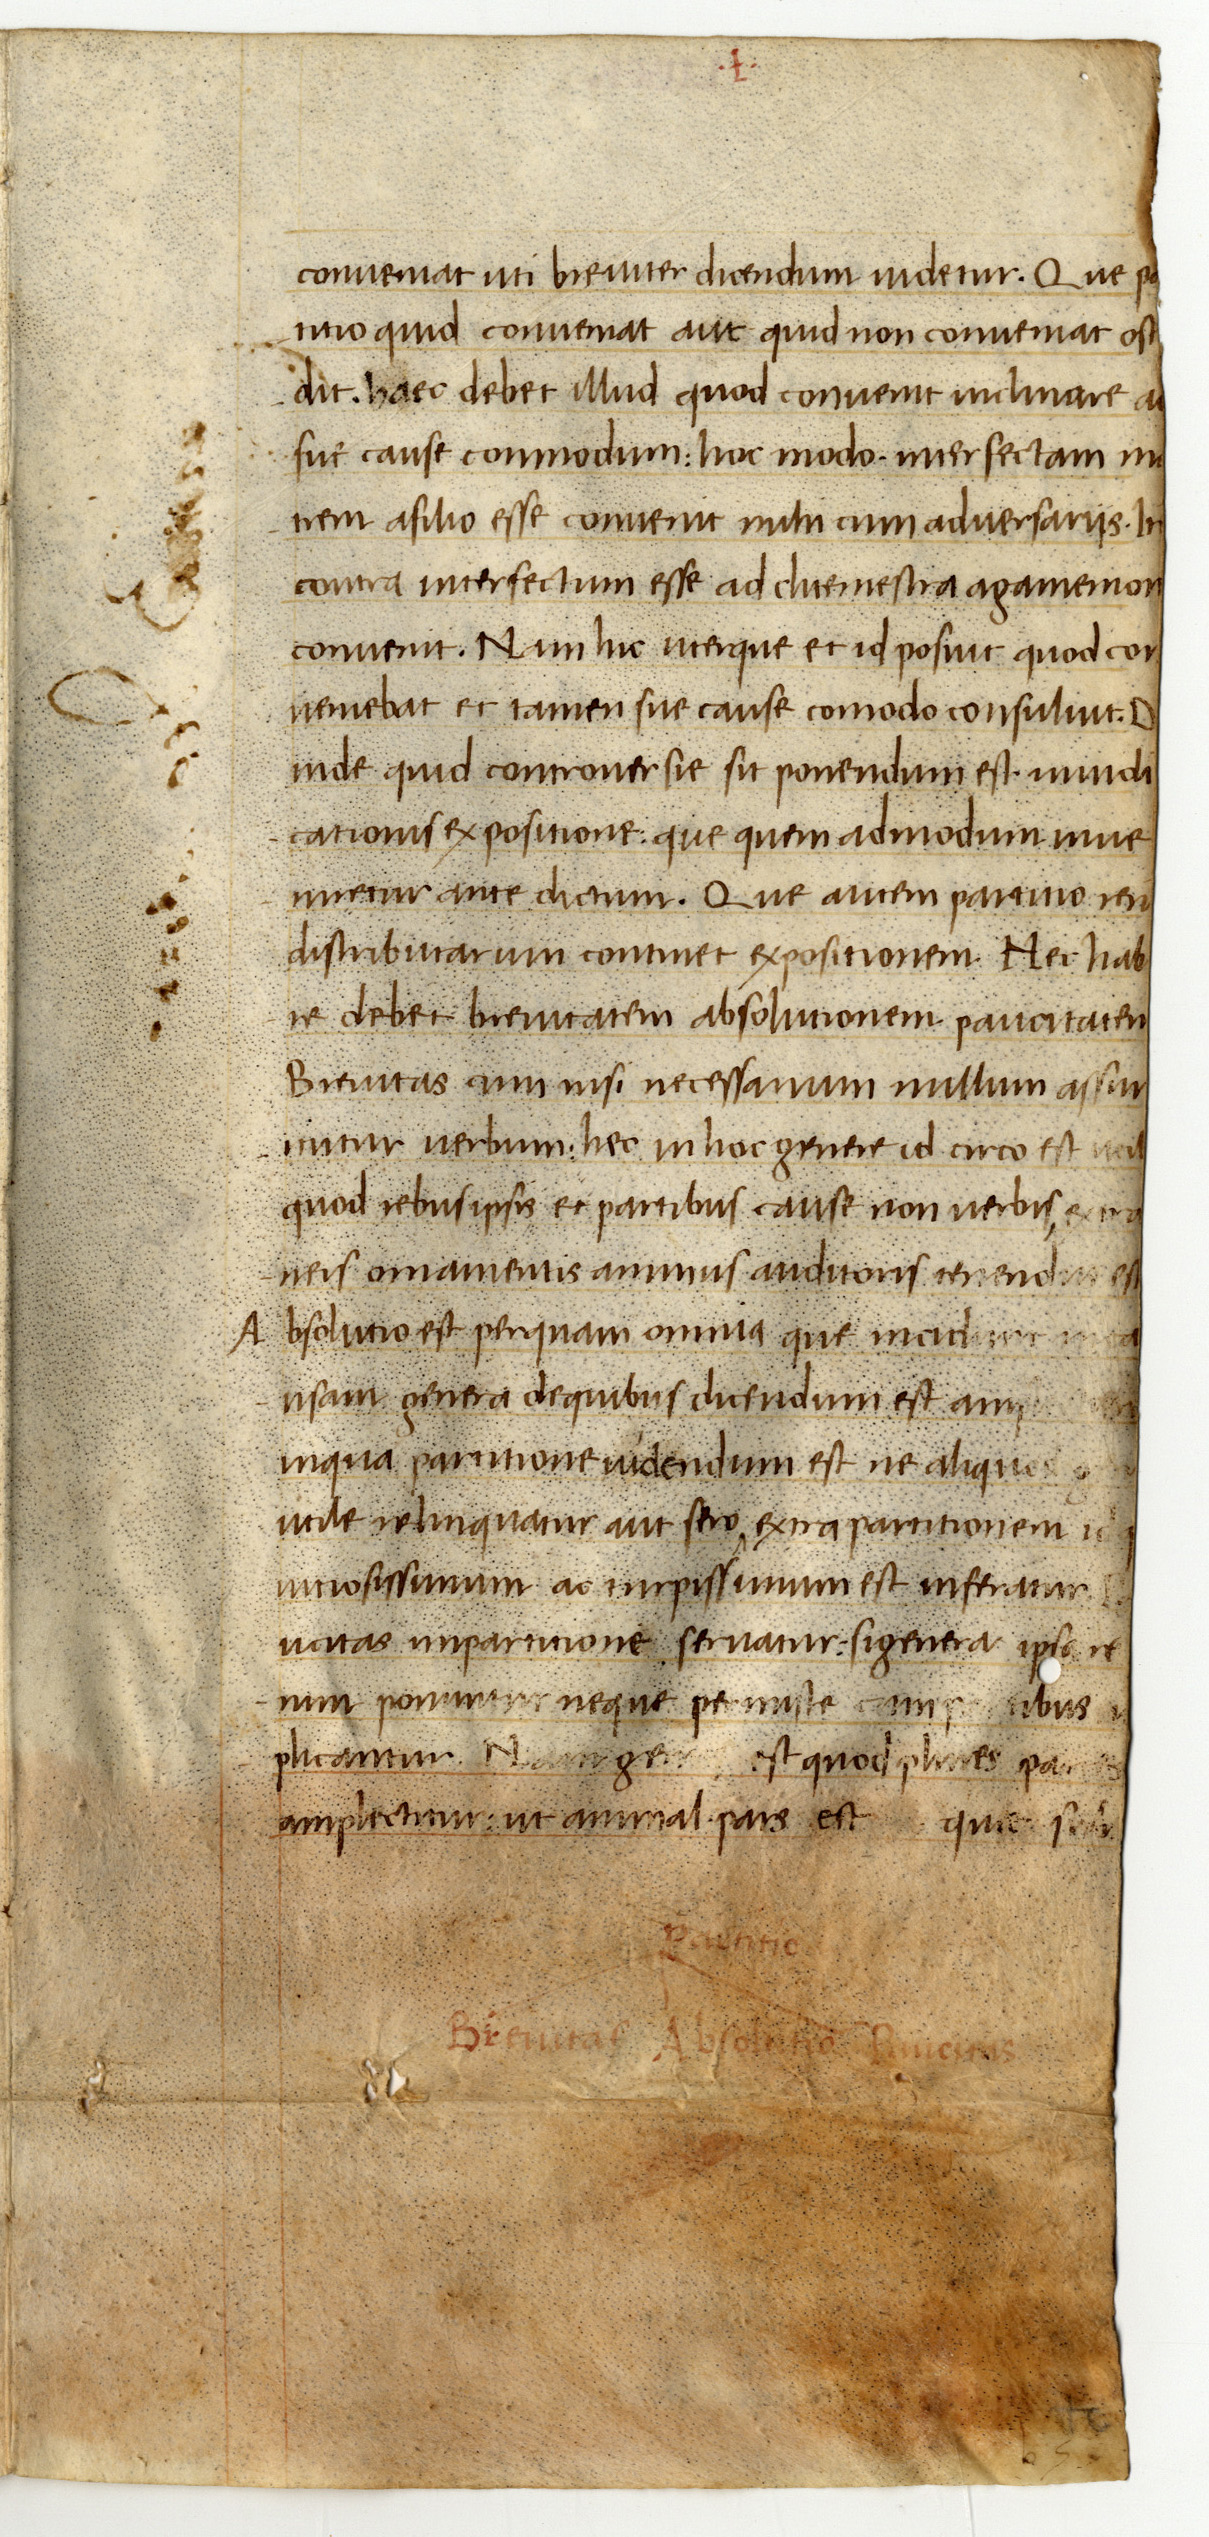 ·t·
conveniat uti breuiter dicendum uidetur. Que pa
titio quid conveniat aut quid non conveniat ost
dit. haec debet illud quod convenit inclinare a
sue cause commodum: hoc modo. interfectam m
trem afilio esse convenit mihi cum adversariis. It
contra interfectum esse ad clitemestra agamemon
convenit. Nam hic uterque et id posuit quod con
veniebat et tamen sue cause comodo consuluit. D
inde quid controversie sit ponendum est. iniudi
cationis expositione: que quem admodum inue
niretur ante dictum. Que autem partitio rer
distributarum continet expositionem. Nec hab
re debet breuitatem absolutionem paucitatem
Breuitas cum nisi necessarium nullum assu
mitur uerbum: hec in hoc genere id circo est util
quod rebus ipsis et partibus cause non uerbis, extra
neis ornamentis animus auditoris tenend est
Absolutio est perquam omnia que incidunt in ca
usam genera dequibus dicendum est amp
inqua partitione uidendum est ne aliquod g
utile relinquatur aut sero, extra partitionem id
uitiosissimum ac turpissimum est inferatur.
ucitas inpartitione seruatur: si genera ipsa re
rum ponuntur neque permiste cum tibus
plicantur. Nam gen est quod plures par
amplectitur: ut animal. pars est que sub
Partitio
Breuitas Absolutio Paucitas